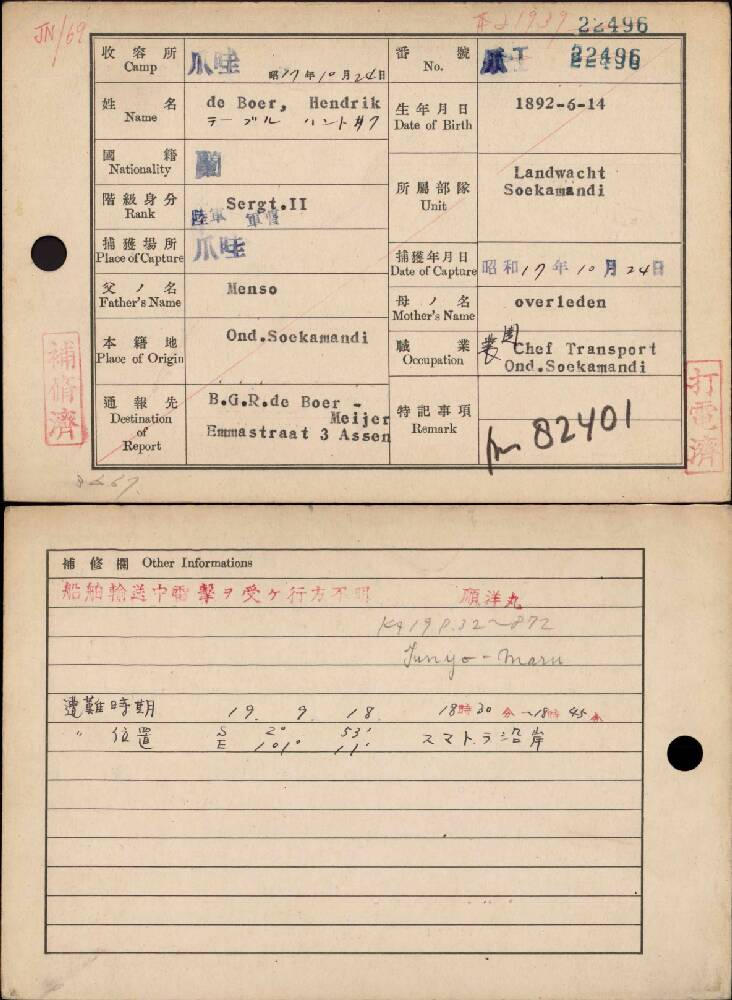 JN/69
22496
收容所 Camp 爪哇 昭17年10月24日
番號 No. 爪 22496
姓名 Name de Boer, Hendrik
生年月日 Date of Birth 1892-6-14
國籍 Nationality 蘭
所屬部隊 Unit Landwacht
Soekamandi
階級身分 Rank Sergt.II
陸軍
捕獲場所 Place of Capture 爪哇
捕獲年月日 Date of Capture 昭和17年10月24日
父ノ名 Father's Name Menso
母ノ名 Mother's Name overleden
本籍地 Place of Origin Ond.Soekamandi
職業 Occupation Chef Transport
Ond.Soekamandi
通報先 Destination of Report B.G.R.de Boer -
Meijer
Emmastraat 3 Assen
特記事項 Remark 82401
補修濟
打電濟
補修欄 Other Informations
船舶輸送中雷擊ヲ受ケ行方不明 順洋丸
Junyo-Maru
遭難時期 19. 9. 18. 18時30分~18時45分
〃 位置 S 2° 53'
E 101° 11' スマトラ沿岸